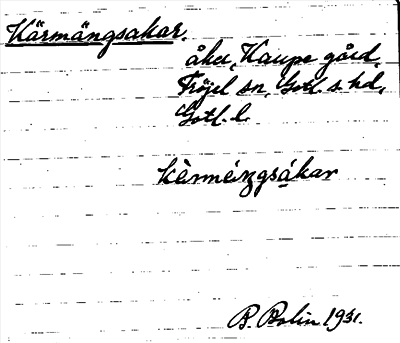 Kärmängsakar.
åker, Kaupe gård,
Fröjel sn, Gotl. s. hd,
Gotl. l.
kèrméngsákar
B. Bolin 1931.